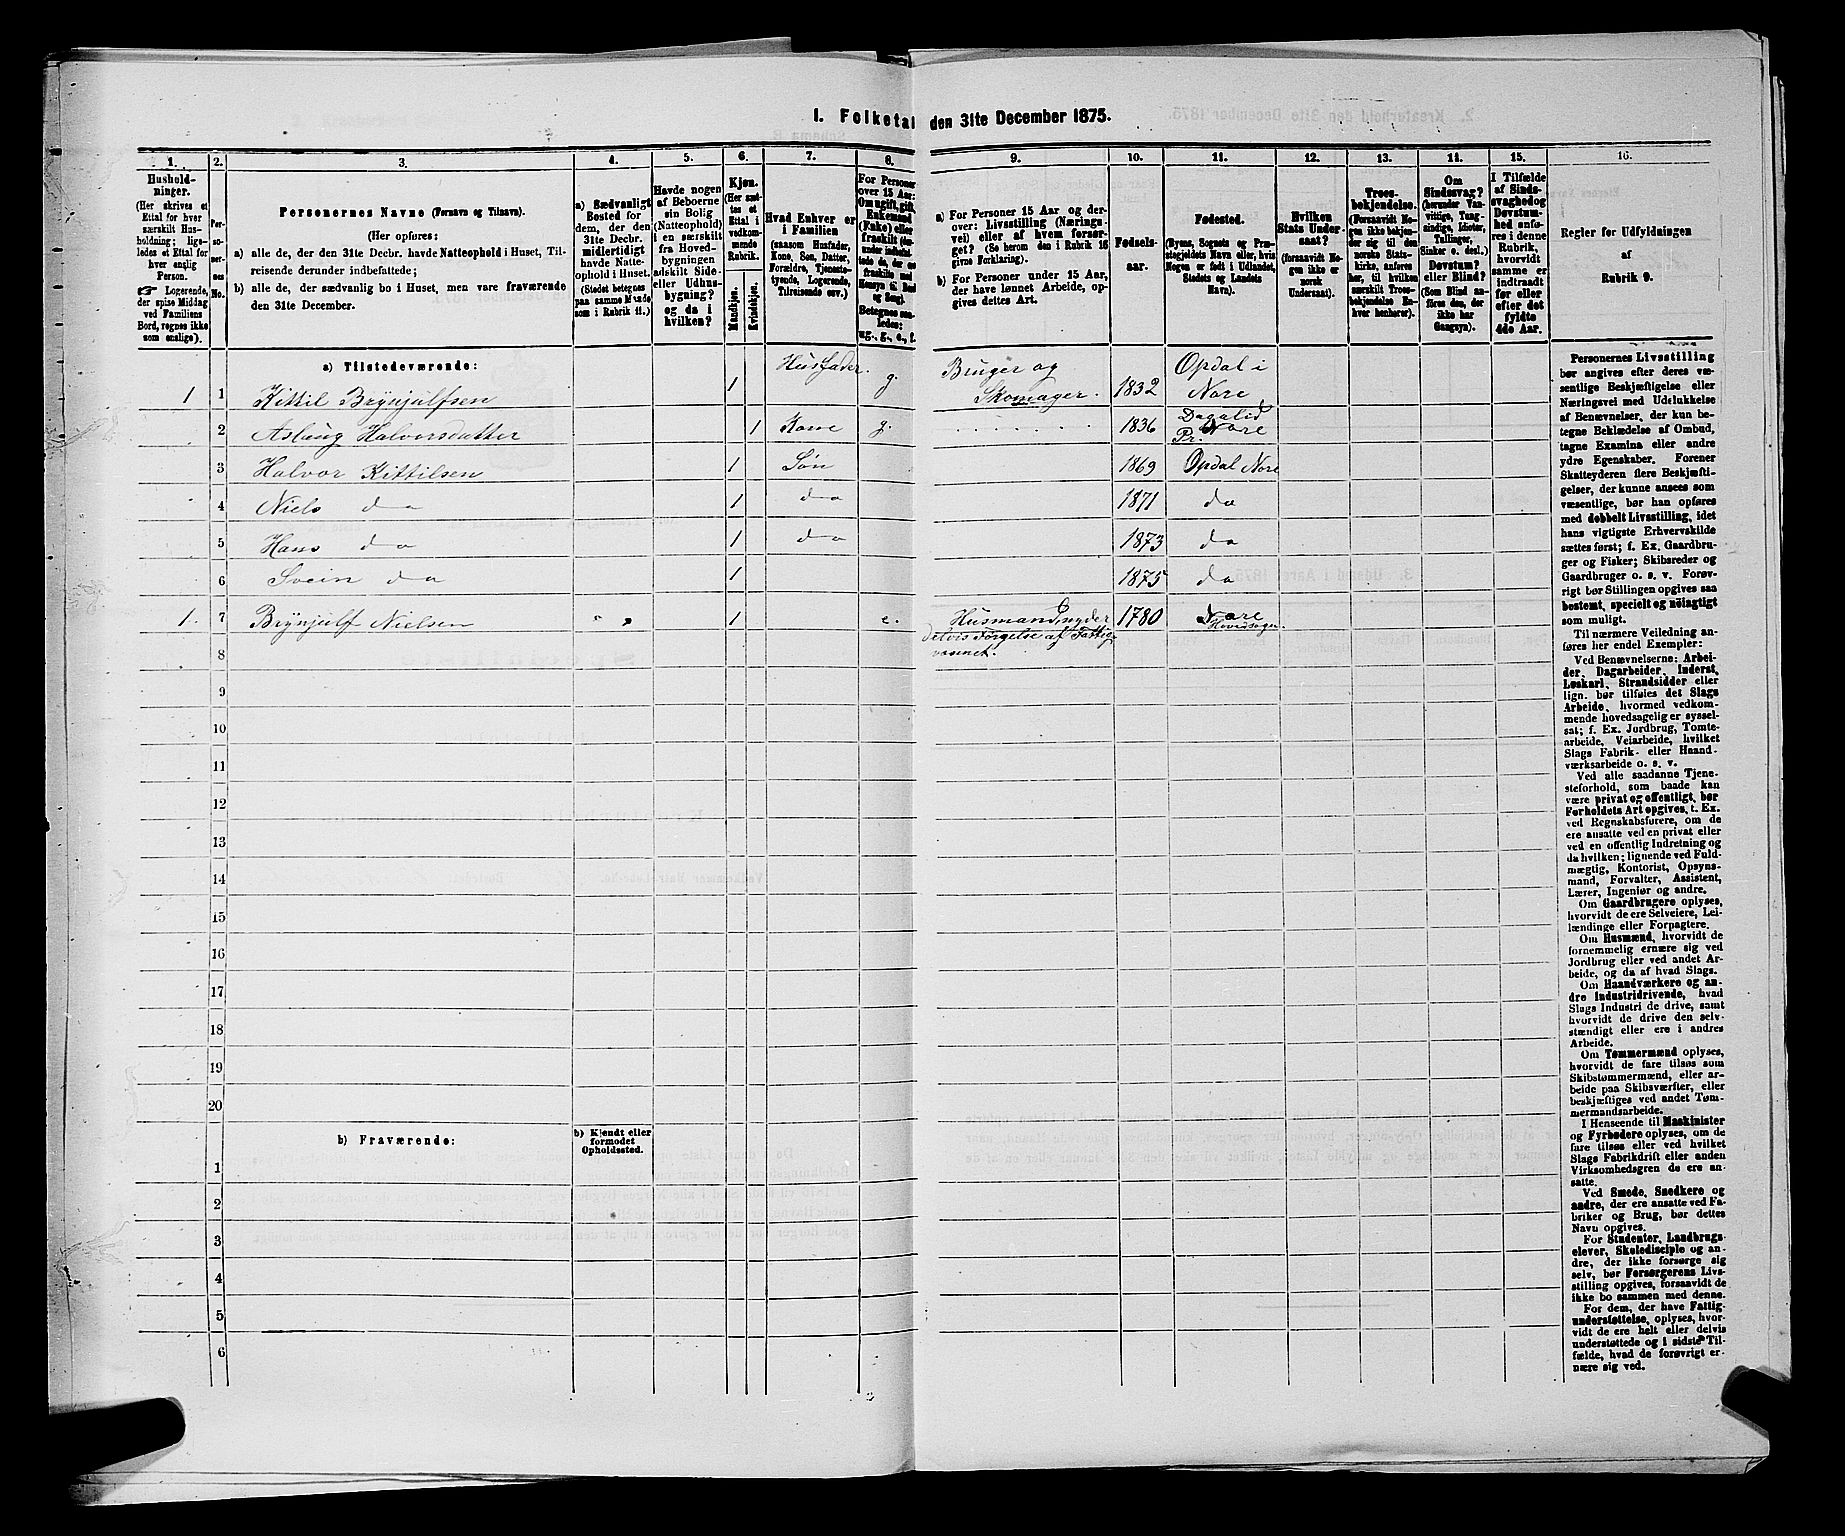 1. Folketal den 31te December 1875.
1. 2. 3. 4. 5. 6. 7. 8. 9. 10. 11. 12. 13. 14. 15. 16.
Hushold-
ninger.
(Her skrives et
Ettal for hver
særskilt Hus-
holdning; lige-
ledes et Ettal for
hver enslig
Person.
☞ Logerende,
der spise Middag
ved Familiens
Bord, regnes ikke
som enslige).
Per-
so-
ner-
nes
No.
Personernes Navne (Fornavn og Tilnavn).
(Her opføres:
a) alle de, der den 31te Decbr. havde Natteophold i Huset, Til-
reisende derunder indbefattede;
b) alle de, der sædvanlig bo i Huset, men vare fraværende
den 31te December.
a) Sædvanligt
Bosted for
dem, der den
31te Decbr.
midlertidigt
havde Natte-
ophold i Huset.
(Stedet betegnes
paa samme Maade
som i Rubrik 11.)
Havde nogen
af Beboerne
sin Bolig
(Natteophold)
i en særskilt
fra Hoved-
bygningen
adskilt Side-
eller Udhus-
bygning?
og da i
hvilken?
Kjøn.
(Her sæt-
tes et
Ettal i
vedkom-
mende
Rubrik.
Mandkjøn.
Kvindekjøn.
Hvad Enhver er
i Familien
(saasom Husfader,
Kone, Søn, Datter,
Forældre, Tjeneste-
tyende, Logerende,
Tilreisende osv.)
For Personer
over 15 Aar:
Om ugift, gift,
Enkemand
(Enke) eller
fraskilt
Betegnes saa-
ledes:
ug., g., e., f.
a) For Personer 15 Aar og der-
over: Livsstilling (Nærings-
vei) eller af hvem forsør-
get? (Se herom den i Rubrik 16
givne Forklaring).
b) For Personer under 15 Aar,
der have lønnet Arbeide, op-
gives dettes Art.
Fødsels-
aar.
Fødested.
(Byens, Sognets og Præ-
stegjeldets Navn eller, hvis
Nogen er født i Udlandet,
Stedets og Landets
Navn).
Hvilken
Stats Under-
saat?
(forsaavidt No-
gen ikke er
norsk
Undersaat).
Troes-
bekjendelse.
(Forsaavidt No-
gen ikke bekjen-
der sig til den
norske Stats-
kirke, anføres
her, til hvilken
særskilt Troes-
bekjendelse En-
hver henhører).
Om
Sindssvag?
(herunder Van-
vittige, Tung-
sindige, Idioter,
Tullinger,
Sinker o. desl.)
Døvstum?
eller Blind?
(Som Blind an-
føres den, der
ikke har
Gangsyn).
I Tilfælde
af Sinds-
svaghed og
Døvstum-
hed anfø-
res i denne
Rubrik,
hvorvidt
samme er
indtraadt
før eller
efter det
fyldte
4de Aar.
Regler for Udfyldningen
af
Rubrik 9.
a) Tilstedeværende:
1 1 Kittil Brynjulfsen 1 Husfader. g. Bruger og Skomager. 1832 Opdal i Nore
2 Aslaug Halvorsdatter 1 Kone g. 1836 Dagalid Pr. Nore
3 Halvor Kittilsen 1 Søn 1869 Opdal Nore
4 Niels do 1 do 1871 do
5 Hans do 1 do 1873 do
6 Svein do 1 1875 do
1. 7 Brynjulf Nielsen 1 e. Husmand, nyder 1780 Nore Hovedsogn.
delvis Forsørgelse af Fattig-
væsenet.
8
9
10
11
12
13
14
15
16
17
18
19
20
b) Fraværende:
b) Kjendt eller
formodet
Opholdssted.
1
2
3
4
5
6
Personernes Livsstilling
bør angives efter deres væ-
sentlige Beskjæftigelse eller
Næringsvei med Udelukkelse
af Benævnelser, der kun be-
tegne Beklædelse af Ombud,
tagne Examina eller andre
ydre Egenskaber. Forener
Skatteyderen flere Beskjæfti-
gelser, der kunne ansees som
væsentlige, bør han opføres
med dobbelt Livsstilling, idet
hans vigtigste Erhvervskilde
sættes først; f. Ex. Gaardbru-
ger og Fisker; Skibsreder og
Gaardbruger o. s. v. Forøv-
rigt bør Stillingen opgives saa
bestemt, specielt og nøiagtigt
som muligt.
Til nærmere Veiledning an-
føres her endel Exempler:
Ved Benævnelserne: Arbei-
der, Dagarbeider, Inderst,
Løskarl, Strandsidder eller
lign. bør tilføies det Slags
Arbeide, hvormed vedkom-
mende hovedsagelig er syssel-
sat; f. Ex. Jordbrug, Tomte-
arbeide, Veiarbeide, hvilket
Slags Fabrik- eller Haand-
værksarbeide o. s. v.
Ved alle saadanne Tjene-
steforhold, som baade kan
være privat og offentligt, bør
Forholdets Art opgives, t. Ex.
ved Regnskabsførere, om de
ere ansatte ved en privat eller
ved en offentlig Indretning og
da hvilken; lignende ved Fuld-
mægtig, Kontorist, Opsyns-
mand, Forvalter, Assistent,
Lærer, Ingeniør og andre.
Om Gaardbrugere oplyses,
hvorvidt de ere Selveiere, Lei-
lændinge eller Forpagtere.
Om Husmænd, hvorvidt de
fornemmelig ernære sig ved
Jordbrug eller ved andet Ar-
beide, og da af hvad Slags.
Om Haandværkere og an-
dre Industridrivende, hvad
Slags Industri de drive, samt
hvorvidt de drive den selv-
stændigt eller ere i andres
Arbeide.
Om Tømmermænd oplyses,
hvorvidt de fare tilsøs som
Skibstømmermænd, eller ar-
beide paa Skibsværfter, eller
beskjæftiges ved andet Tøm-
mermandsarbeide.
I Henseende til Maskinister
og Fyrbødere oplyses, om de
fare tilsøs eller ved hvilket
Slags Fabrikdrift eller anden
Virksomhedsgren de ere an-
satte.
Ved Smede, Snedkere og
andre, der ere ansatte ved Fa-
briker og Brug, bør dettes
Navn opgives.
For Studenter, Landbrugs-
elever, Skoledisciple og an-
dre, der ikke forsørge sig
selv, bør Forsørgerens Livs-
stilling opgives, forsaavidt de
ikke bo sammen med denne.
For dem, der have Fattig-
understøttelse, oplyses, hvor-
vidt de ere helt eller delvis
understøttede og i sidste Til-
fælde, hvad de forøvrigt er-
nære sig ved.